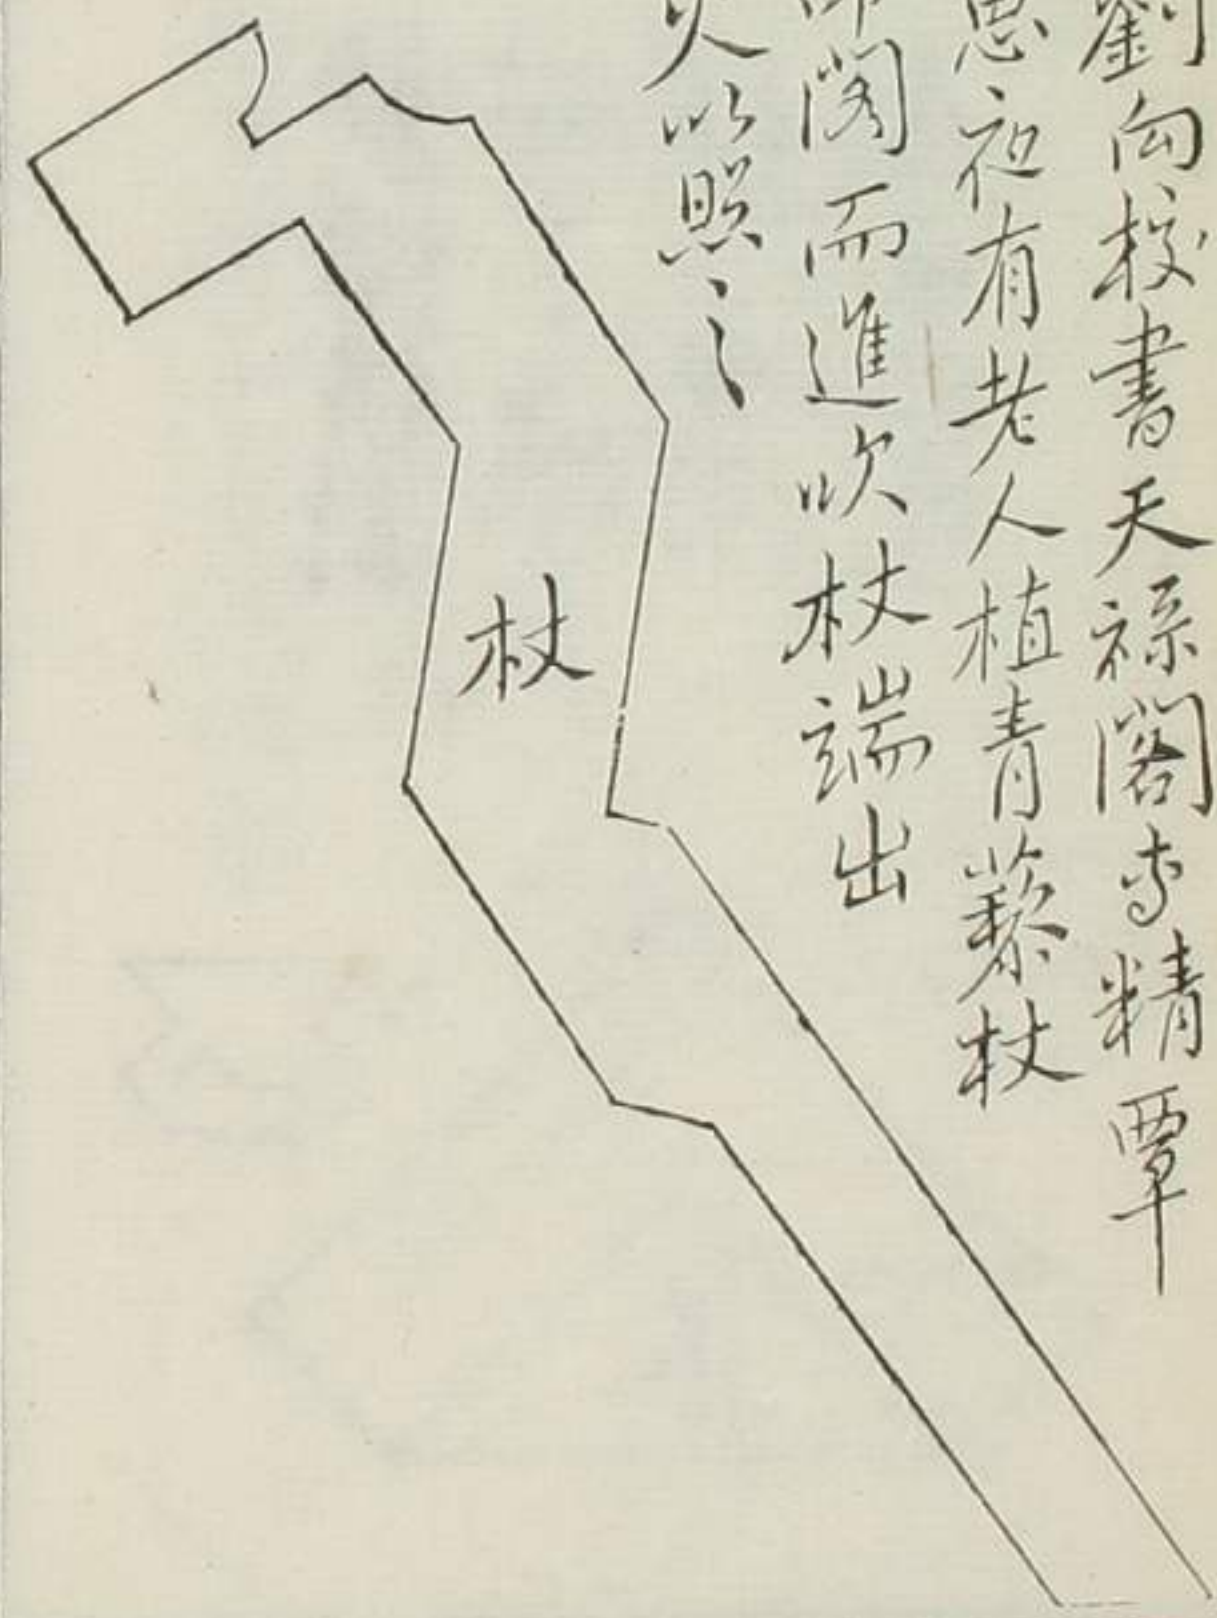 劉向校書天祿閣专精覃
思夜有老人植青藜杖
叩閣而進吹杖端出
火以照之
杖